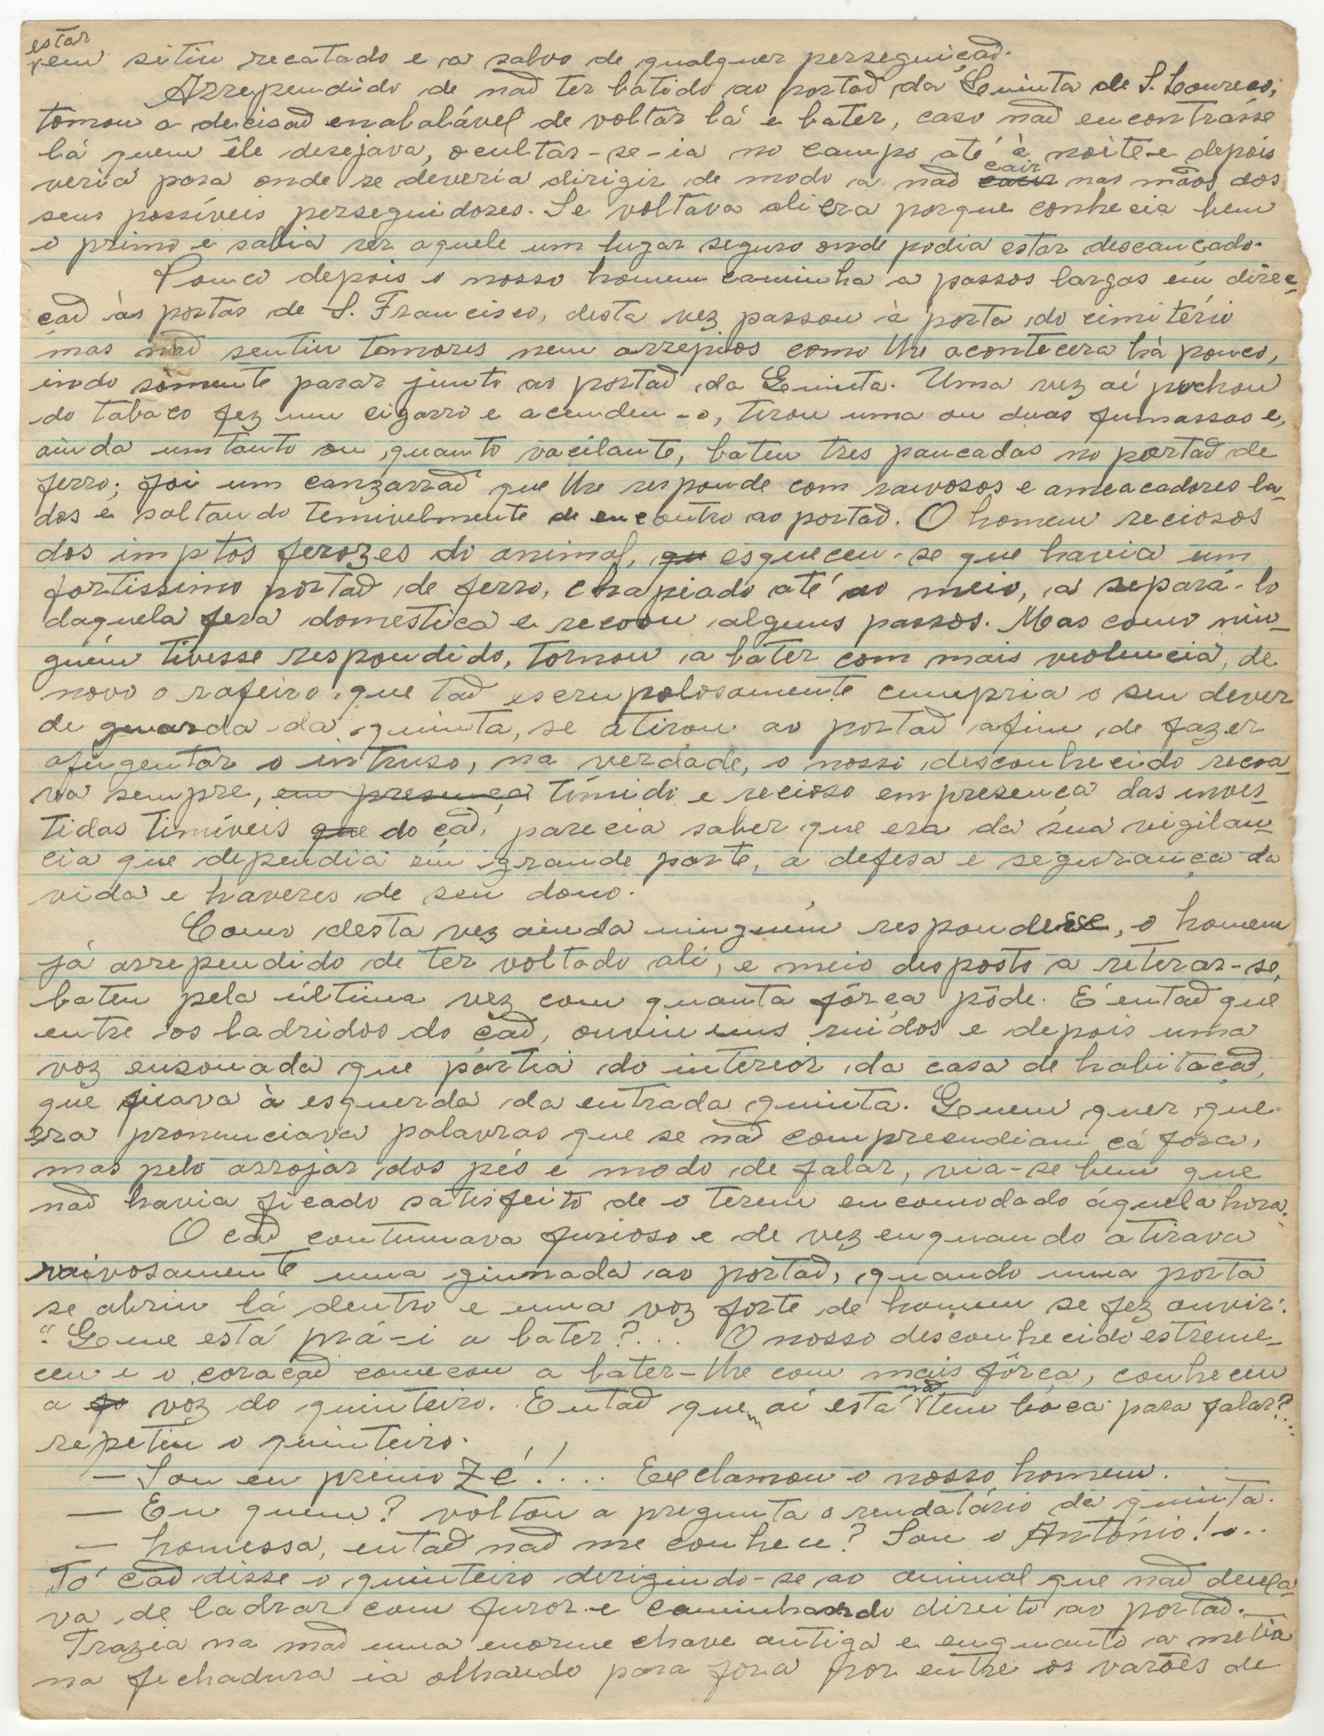 estar
em sitiu recatado e a salvo de qualquer perseguição.
Arrependido de não ter batido ao portão da Quinta de S. Loureço,
tomou a decisão enabalável de voltar lá e bater, caso não encontrásse
lá quem êle desejava, ocultar-se-ia no campo até à noite e depois
veria para onde se deveria dirigir de modo a não cair nas mãos dos
seus possíveis perseguidores. Se voltava ali era porque conhecia bem
o primo e sabia ser aquele um lugar seguro onde podia estar descançado.
Pouco depois o nosso homem caminha a passos largos em direc-
ção às portas de S. Francisco, desta vez passou à porta do cimitério
mas não sentiu temores nem arrepios como lhe acontecera há pouco,
indo sòmente parar junto ao portão da Quinta. Uma vez aí puchou
do tabaco fez um cigarro e acendeu-o, tirou uma ou duas fumassas e,
ainda um tanto ou quanto vacilante, bateu tres pancadas no portão de
ferro; foi um canzarrão que lhe responde com raivosos e ameacadores la-
dos e saltando temivelmente de encontro ao portão. O homem reciosos
dos imptos ferozes do animal, qu esqueceu-se que havia um
fortissimo portão de ferro, chapiado até ao meio, a separá-lo
daquela fera domestica e recoou alguns passos. Mas como nin-
guém tivesse respondido, tornou a bater com mais violencia, de
novo o rafeiro que tão escrupolosamente cumpria o seu dever
de guarda da quinta, se atirou ao portão afim de fazer
afugentar o intruso, na verdade, o nosso desconhecido recoa-
va sempre, em presença tímido e recioso em presença das inves-
tidas timíveis que do cão, parecia saber que era da sua vigilan-
cia que dependia em grande parte, a defesa e segurança da
vida e haveres de seu dono.
Como desta vez ainda ninguém respondesse, o homem
já arrependido de ter voltado ali, e meio desposto a reterar-se,
bateu pela última vez com quanta fôrça pôde. É então que
entre os ladridos do cão, ouviu uns ruídos e depois uma
voz ensonada que pártia do interior da casa de habitação,
que ficava à esquerda da entrada quinta. Quem quer que
era pronunciava palavras que se não compreendiam cá fora,
mas pelo arrojar dos pés e modo de falar, via-se bem que
não havia ficado satisfeito de o terem encomodado áquela hora.
O cão continuava furioso e de vez enquando atirava
raivosamente uma guinada ao portão, quando uma porta
se abriu lá dentro e uma voz forte de homem se fez ouvir:
"Quem está prá-i a bater?... O nosso desconhecido estreme-
ceu e o coração começou a bater-lhe com mais fôrça, conheceu
a fo voz do quinteiro. Então quem aí está não tem bôca para falar?...
repetiu o quinteiro.
— Sou eu primo Zé!... Exclamou o nosso homem.
— Eu quem? voltou a pregunta o rendatário da quinta.
— homessa, então não me conhece? Sou o António!...
Tó cão disse o quinteiro derigindo-se ao animal que não deixa-
va de ladrar com furor e caminhando direito ao portão.—
Trazia na mão uma enorme chave antiga e enquanto a metia
na fechadura ia olhando para fora por entre os varões de